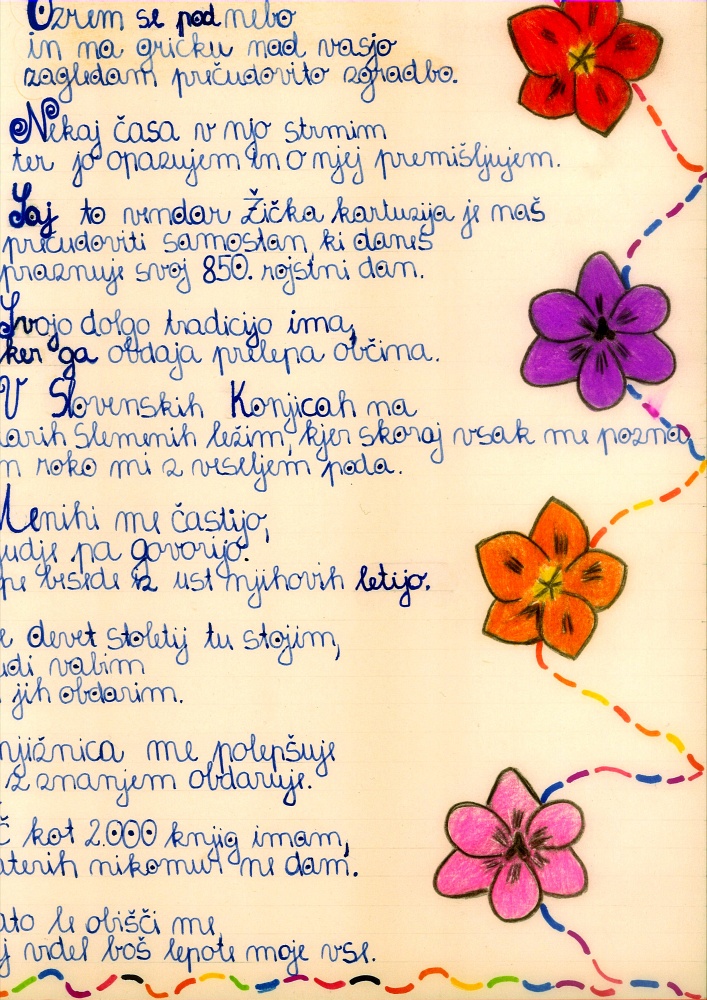 Ozrem se pod nebo
in na gričku nad vasjo
zagledam prečudovito zgradbo.
Nekaj časa v njo strmim
ter jo opazujem in o njej premišljujem.
Saj to vendar Žička kartuzija je naš
prečudoviti samostan, ki danes
praznuje svoj 850. rojstni dan.
Svojo dolgo tradicijo ima,
ker ga obdaja prelepa občina.
V Slovenskih Konjicah na
arih Slemenih ležim, kjer skoraj vsak me pozna
n roko mi z veseljem poda.
Menihi me častijo,
udje pa govorijo:
pe besede iz ust njihovih letijo.
e devet stoletij tu stojim,
udi vabim
jih obdarim.
njižnica me polepšuje
z znanjem obdaruje.
č kot 2.000 knjig imam,
aterih nikomur ne dam.
ato le obišči me,
j videl boš lepote moje vse.